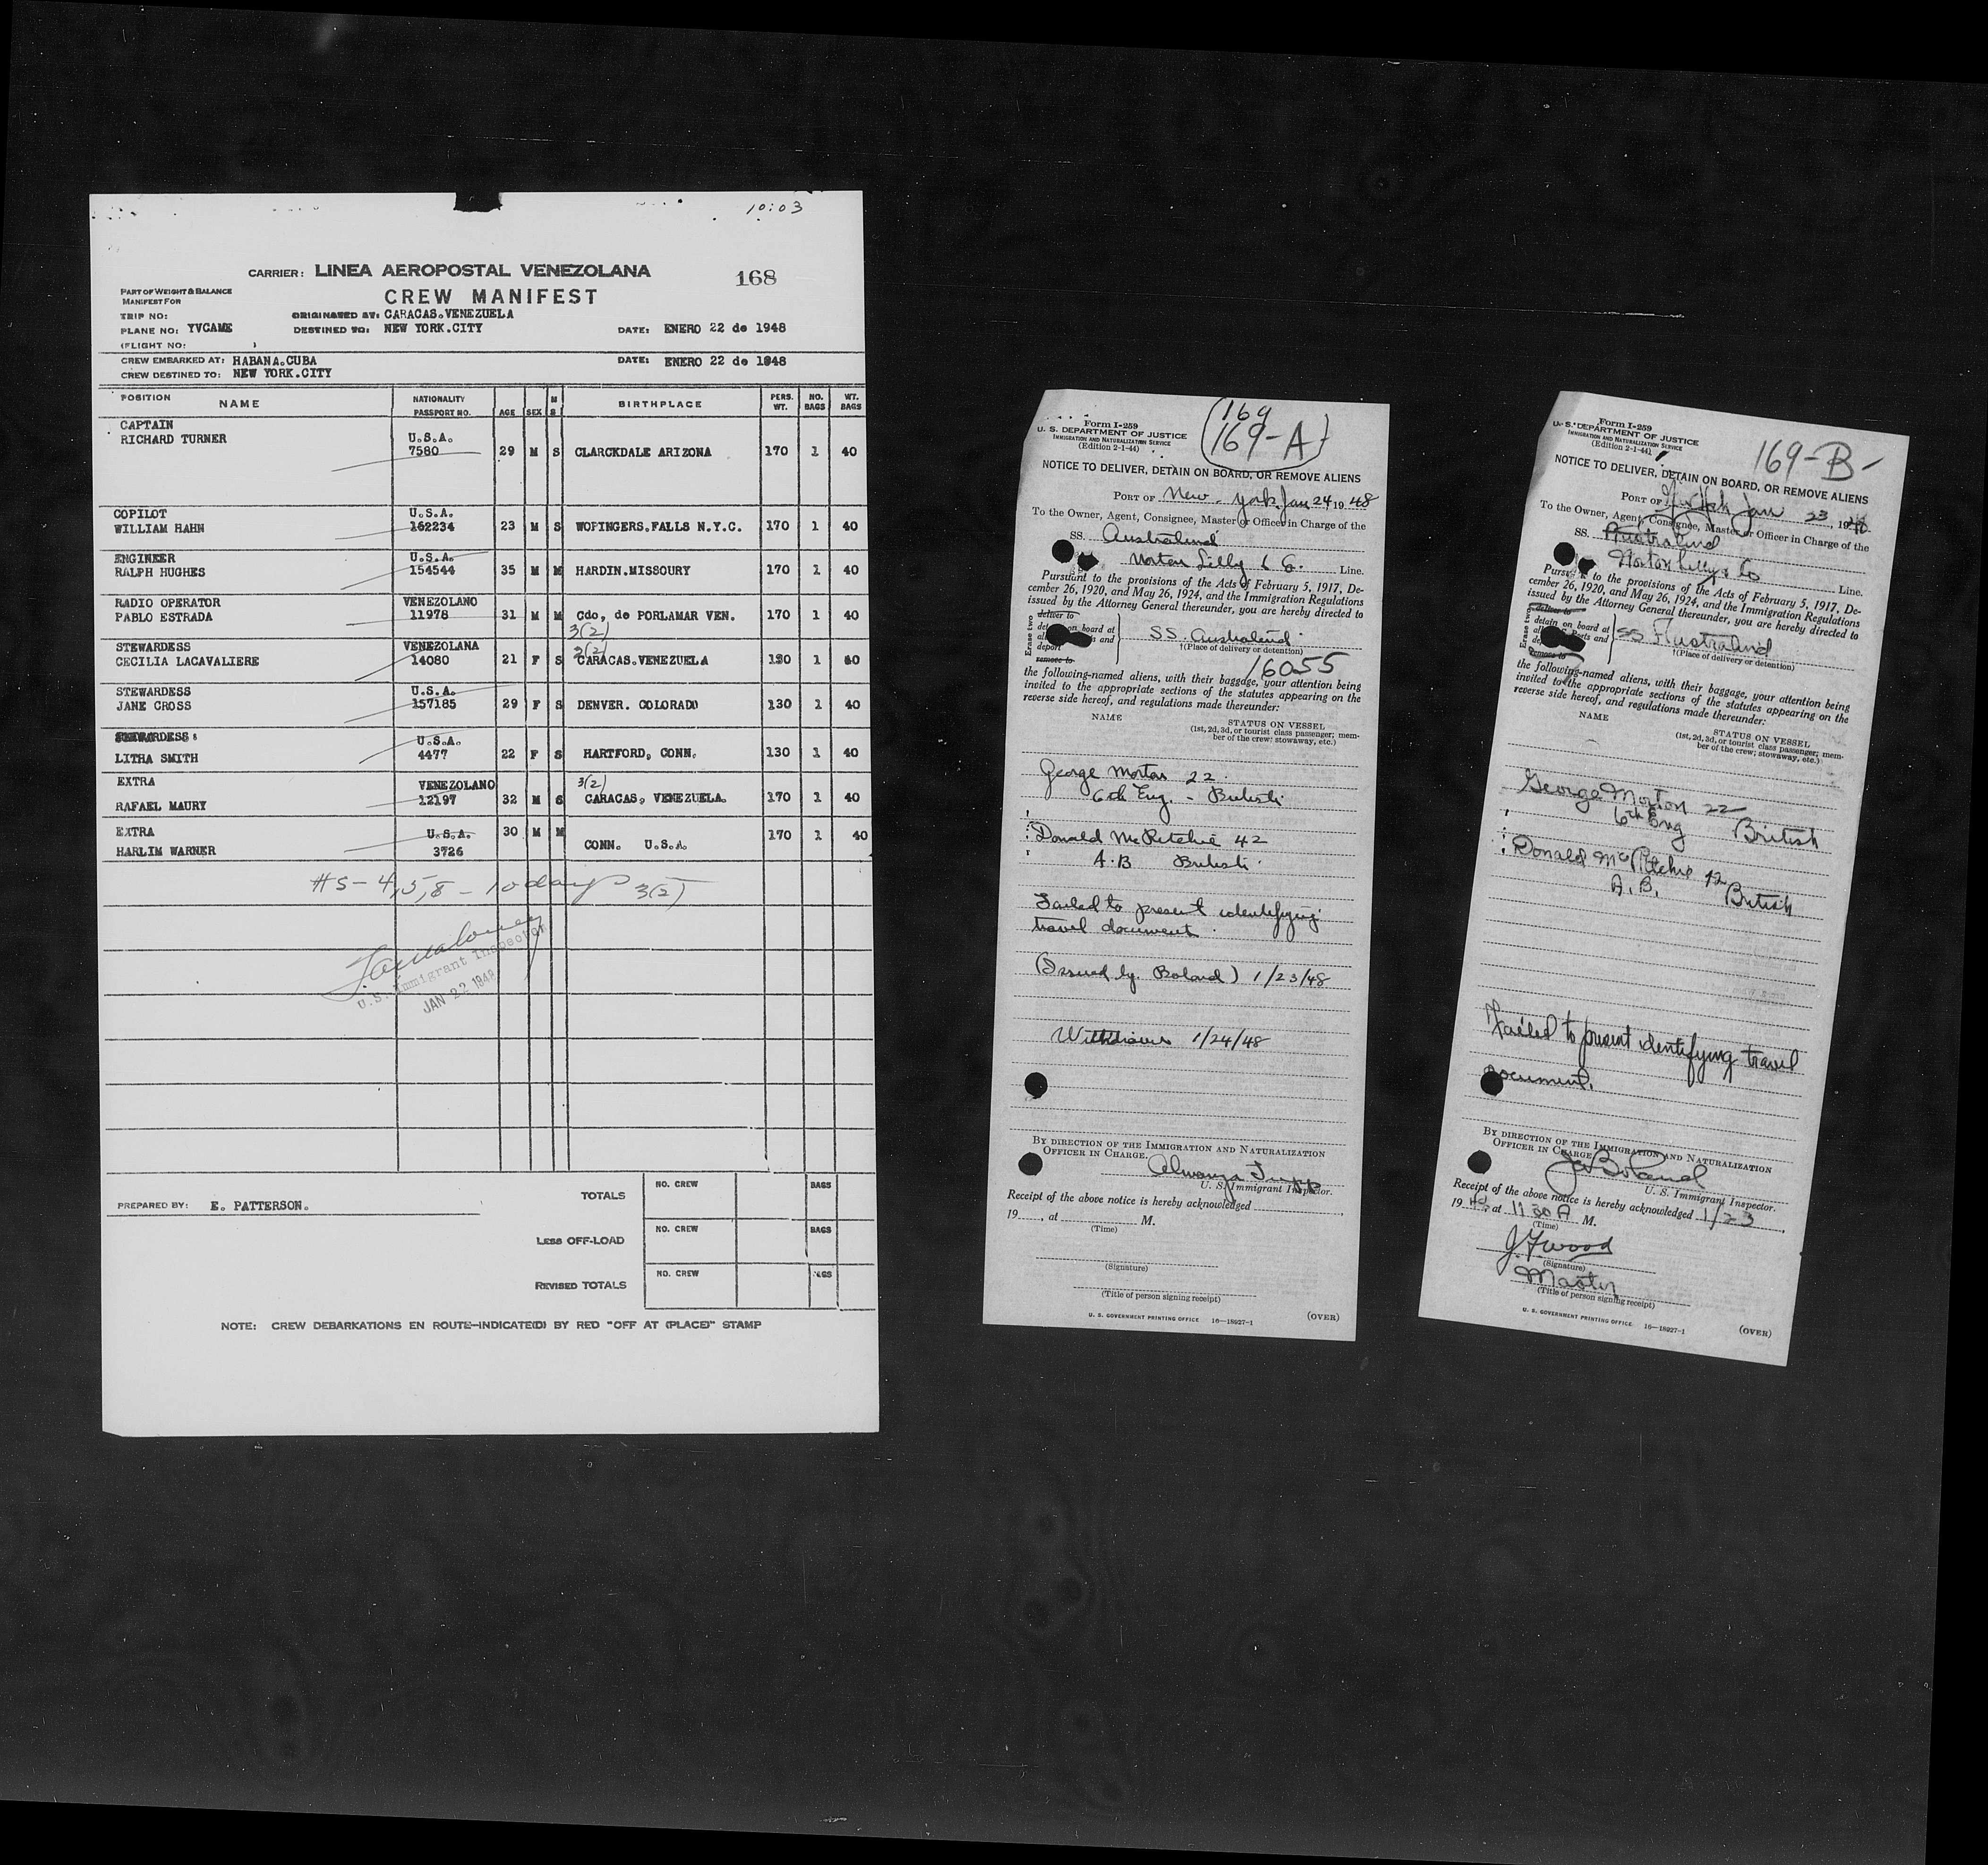 10:03
CARRIER: LINEA AEROPOSTAL VENEZOLANA
168
PART OF WEIGHT & BALANCE
MANIFEST FOR
CREW MANIFEST
TRIP NO:
ORIGINATED AT: CARACAS.VENEZUELA
PLANE NO: YVCAME
DESTINED TO: NEW YORK.CITY
DATE: ENERO 22 de 1948
(FLIGHT NO: )
CREW EMBARKED AT: HABANA.CUBA
DATE: ENERO 22 de 1948
CREW DESTINED TO: NEW YORK.CITY
POSITION NAME NATIONALITY PASSPORT NO. AGE SEX M S BIRTHPLACE PERS. WT. NO. BAGS WT. BAGS
CAPTAIN
RICHARD TURNER U.S.A. 7580 29 M S CLARCKDALE ARIZONA 170 1 40
COPILOT U.S.A.
WILLIAM HAHN 162234 23 M S WOPINGERS.FALLS N.Y.C. 170 1 40
ENGINEER U.S.A.
RALPH HUGHES 154544 35 M M HARDIN.MISSOURY 170 1 40
RADIO OPERATOR VENEZOLANO
PABLO ESTRADA 11978 31 M M Cdo, de PORLAMAR VEN. 170 1 40
3(2)
STEWARDESS VENEZOLANA
3(2)
CECILIA LACAVALIERE 14080 21 F S CARACAS.VENEZUELA 130 1 40
STEWARDESS U.S.A.
JANE CROSS 157185 29 F S DENVER. COLORADO 130 1 40
STEWARDESS: U.S.A.
LITHA SMITH 4477 22 F S HARTFORD, CONN. 130 1 40
EXTRA VENEZOLANO
3(2)
RAFAEL MAURY 12197 32 M S CARACAS, VENEZUELA. 170 1 40
EXTRA U.S.A. 30 M M 170 1 40
HARLIM WARNER 3726 CONN. U.S.A.
#s - 4,5,8 - 10 days 3(2)
U.S. Immigrant Inspector
JAN 22 1948
PREPARED BY: E. PATTERSON.
TOTALS NO. CREW BAGS
LESS OFF-LOAD NO. CREW BAGS
REVISED TOTALS NO. CREW BAGS
NOTE: CREW DEBARKATIONS EN ROUTE-INDICATE(D) BY RED "OFF AT (PLACE)" STAMP
169
169-A
Form I-259
U. S. DEPARTMENT OF JUSTICE
IMMIGRATION AND NATURALIZATION SERVICE
(Edition 2-1-44)
NOTICE TO DELIVER, DETAIN ON BOARD, OR REMOVE ALIENS
PORT OF New York Jan 24 1948
To the Owner, Agent, Consignee, Master or Officer in Charge of the
SS. Australind
Norton Lilly & Co. Line.
Pursuant to the provisions of the Acts of February 5, 1917, De-
cember 26, 1920, and May 26, 1924, and the Immigration Regulations
issued by the Attorney General thereunder, you are hereby directed to
Erase two
deliver to
detain on board at
SS. Australind
†(Place of delivery or detention)
deport
remove to
16055
the following-named aliens, with their baggage, your attention being
invited to the appropriate sections of the statutes appearing on the
reverse side hereof, and regulations made thereunder:
NAME STATUS ON VESSEL
(1st, 2d, 3d, or tourist class passenger; mem-
ber of the crew; stowaway, etc.)
George Morton 22
6th Eng. - British
Donald McRitchie 42
A.B British
Failed to present identifying
travel document.
(Issued by Boland) 1/23/48
1/24/48
BY DIRECTION OF THE IMMIGRATION AND NATURALIZATION
OFFICER IN CHARGE.
U. S. Immigrant Inspector.
Receipt of the above notice is hereby acknowledged
19 , at M.
(Time)
(Signature)
(Title of person signing receipt)
U. S. GOVERNMENT PRINTING OFFICE 16-18927-1 (OVER)
169-B-
Form I-259
U. S. DEPARTMENT OF JUSTICE
IMMIGRATION AND NATURALIZATION SERVICE
(Edition 2-1-44)
NOTICE TO DELIVER, DETAIN ON BOARD, OR REMOVE ALIENS
PORT OF Jan 23, 19
To the Owner, Agent, Consignee, Master or Officer in Charge of the
SS. Australind
Norton Lilly & Co Line.
Pursuant to the provisions of the Acts of February 5, 1917, De-
cember 26, 1920, and May 26, 1924, and the Immigration Regulations
issued by the Attorney General thereunder, you are hereby directed to
Erase two
deliver to
detain on board at
SS Australind
†(Place of delivery or detention)
remove to
the following-named aliens, with their baggage, your attention being
invited to the appropriate sections of the statutes appearing on the
reverse side hereof, and regulations made thereunder:
NAME STATUS ON VESSEL
(1st, 2d, 3d, or tourist class passenger; mem-
ber of the crew; stowaway, etc.)
George Morton 22
6th Eng British
Donald McRitchie 42
A.B. British
Failed to present identifying travel
document.
BY DIRECTION OF THE IMMIGRATION AND NATURALIZATION
OFFICER IN CHARGE
Boland
U. S. Immigrant Inspector.
Receipt of the above notice is hereby acknowledged 1/23,
1948, at 11 30 A M.
(Time)
J.F. Wood
(Signature)
Master
(Title of person signing receipt)
U. S. GOVERNMENT PRINTING OFFICE 16-18927-1 (OVER)